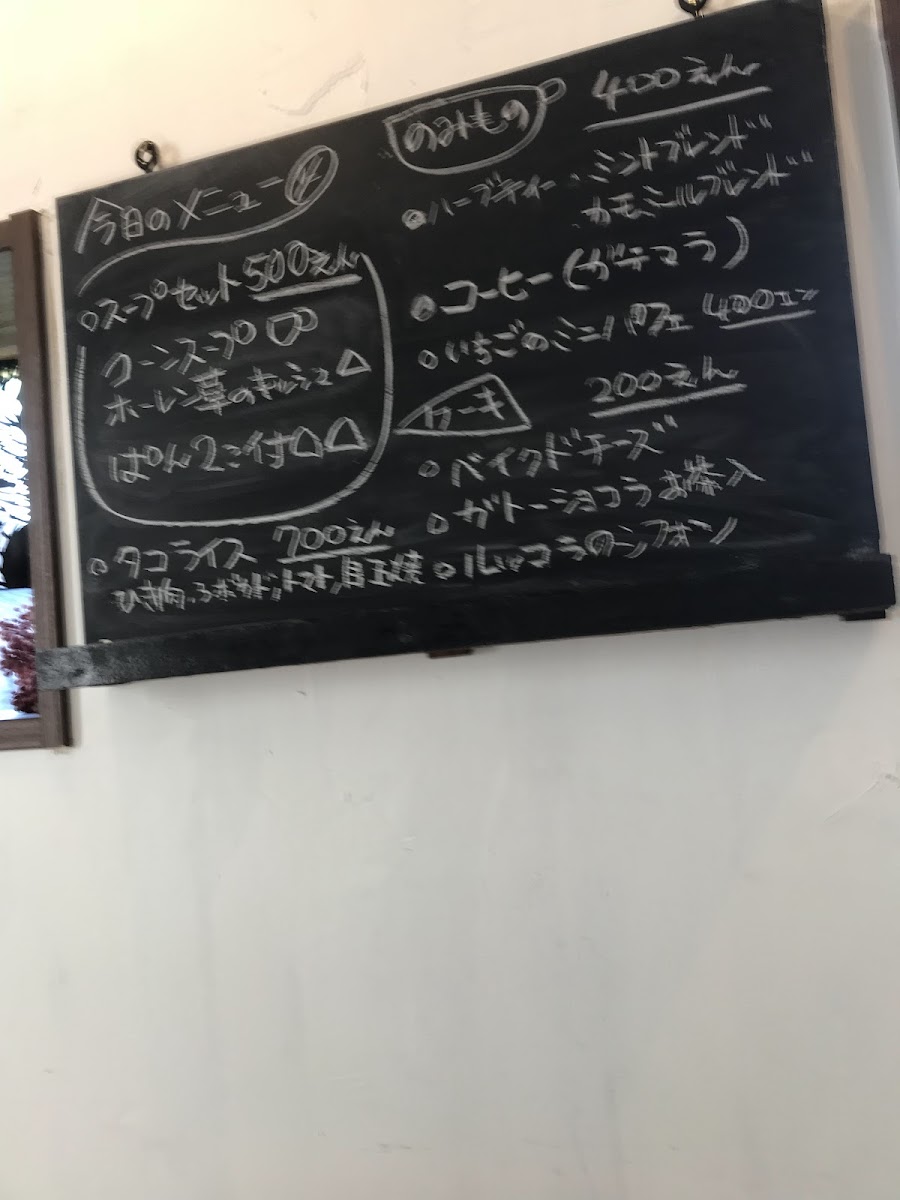 今日のメニュー
○スープセット 500えん
コーンスープ
ホーレン草のキッシュ
ぱん2こ付
○タコライス 700えん
ひき肉、フライドポテト、トマト、目玉焼
のみもの 400えん
●ハーブティー・ミントブレンド
カモミールブレンド
●コーヒー(ガテマラ)
○いちごのミニパフェ 400エン
ケーキ 200えん
○ベイクドチーズ
○ガトーショコラお茶入
○ルッコラのシフォン